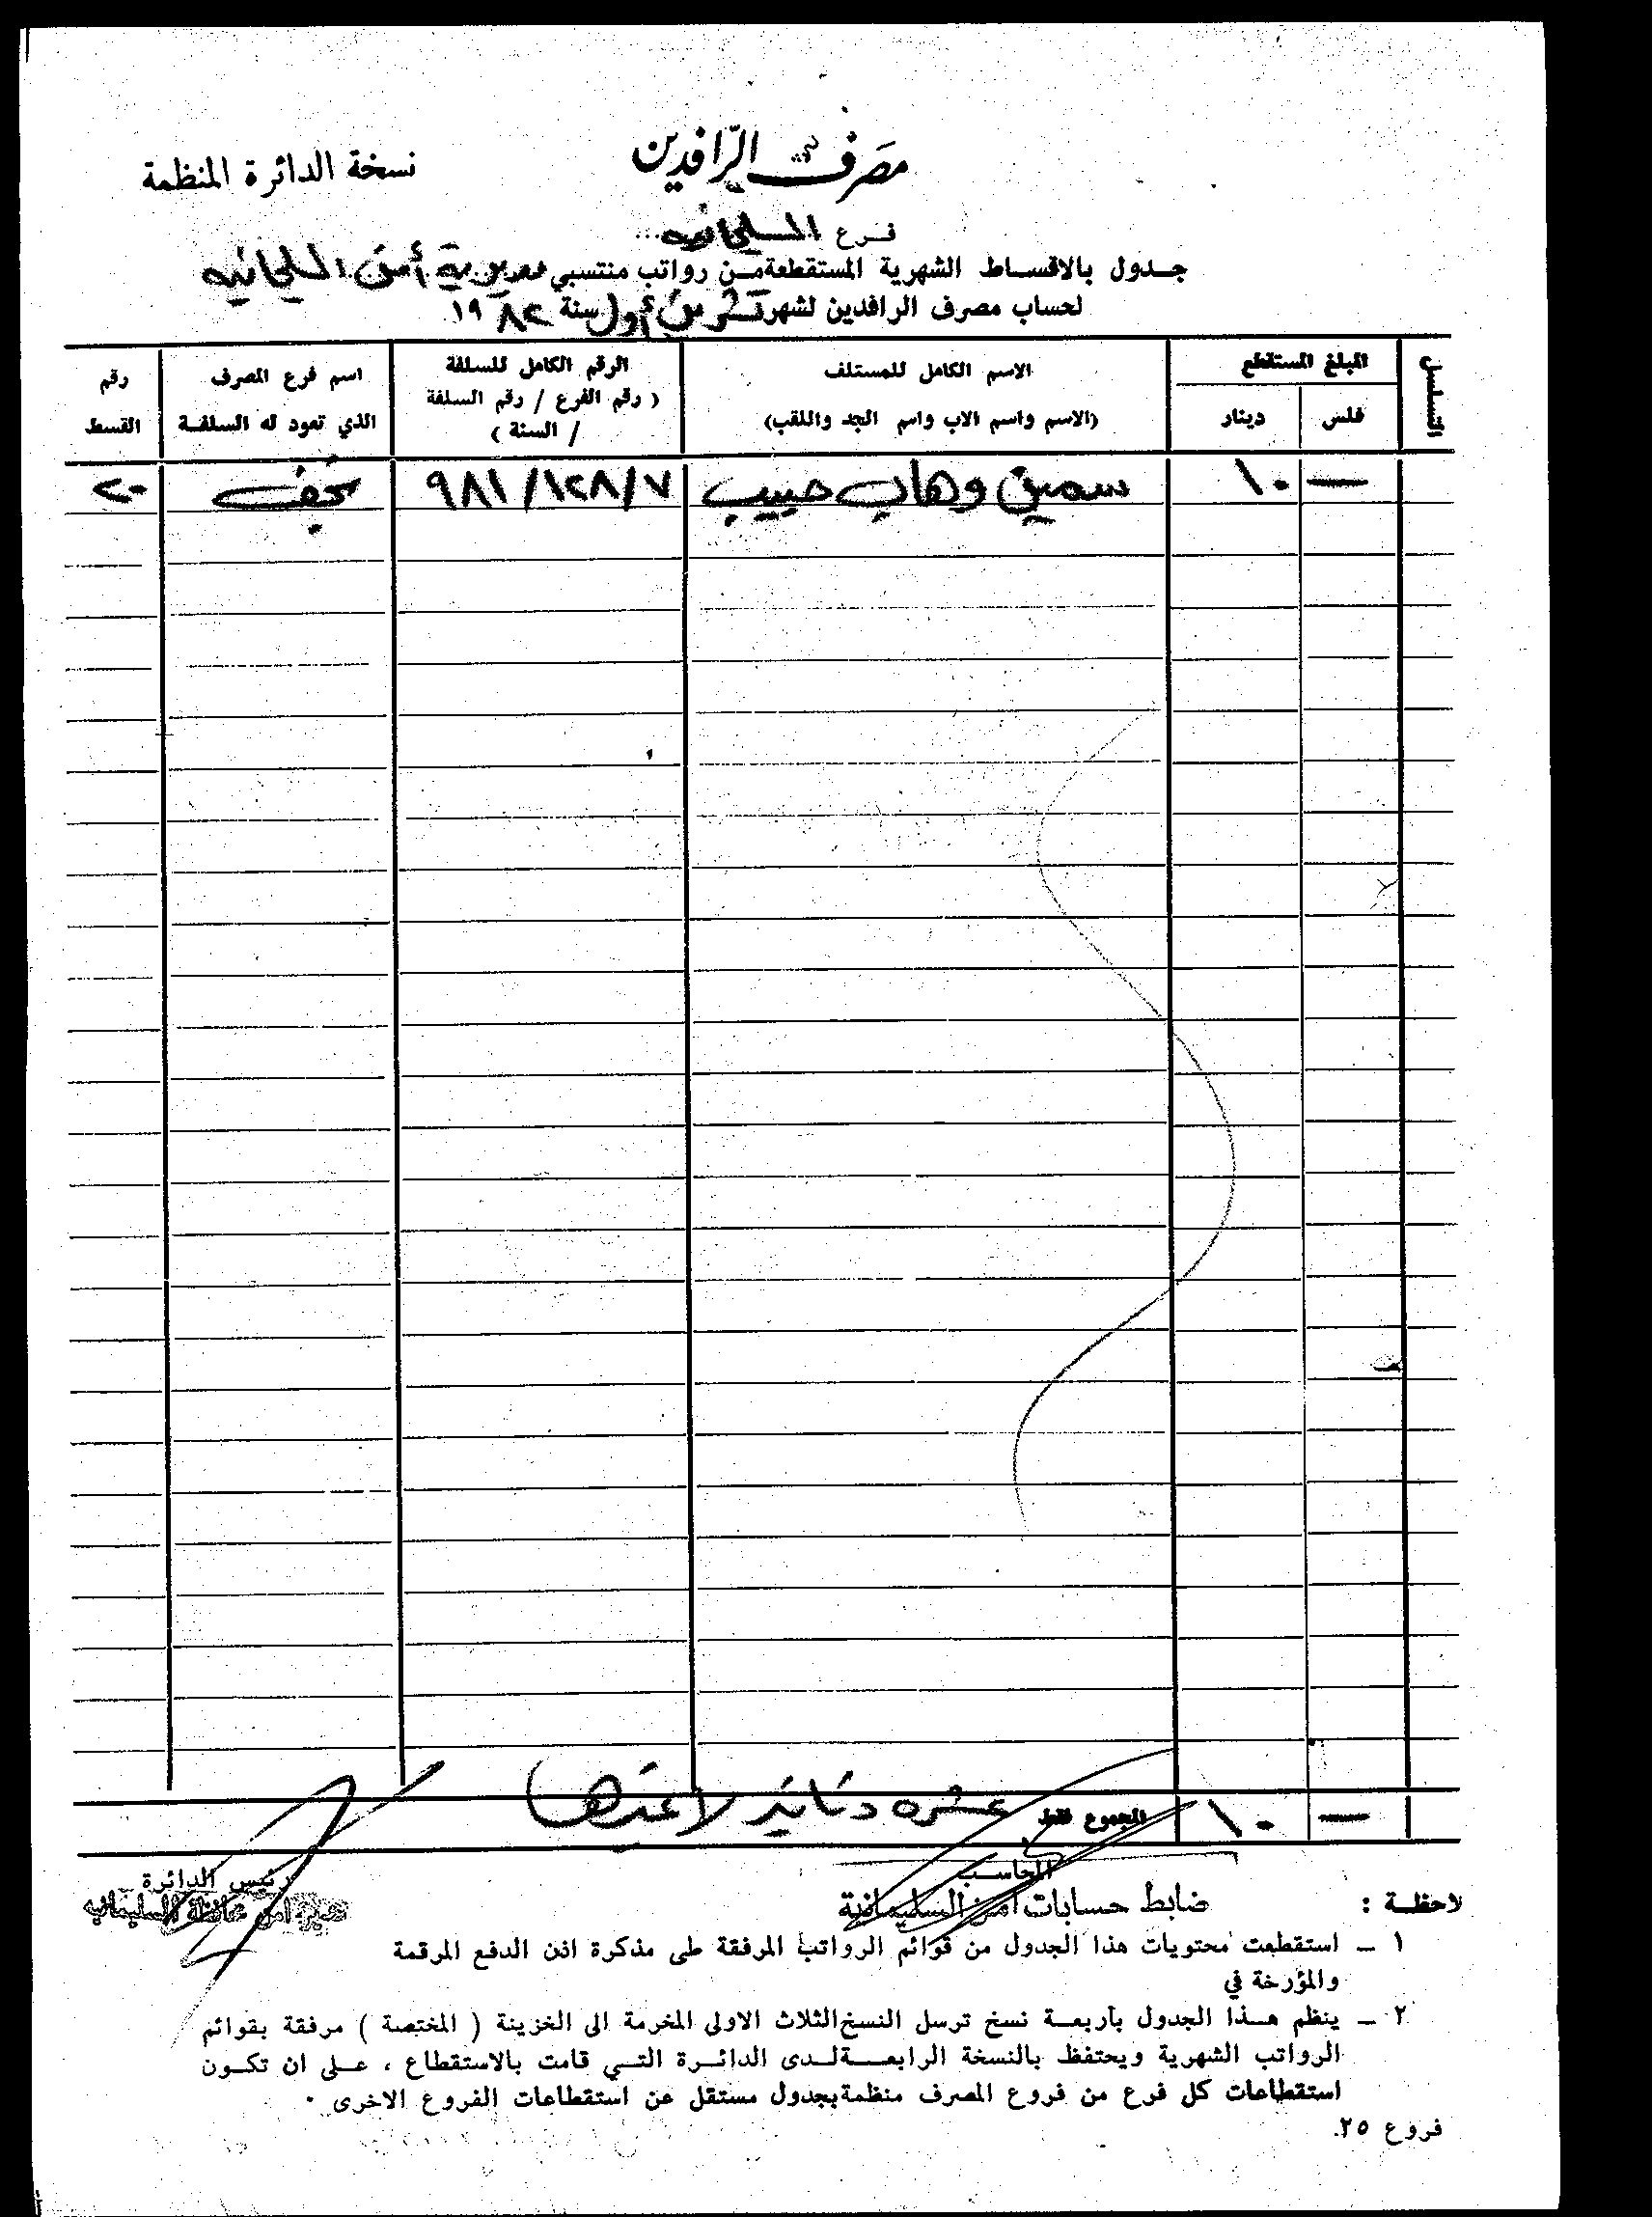 نسخة الدائرة المنظمة
مصرف الرافدين
فرع السليمانيه
جدول بالاقساط الشهرية المستقطعة من رواتب منتسبي مديرية أمن السليمانيه
لحساب مصرف الرافدين لشهر تشرين أول سنة ١٩٨٢
التسلسل
المبلغ المستقطع
فلس
دينار
الاسم الكامل للمستلف
(الاسم واسم الاب واسم الجد واللقب)
الرقم الكامل للسلفة
( رقم الفرع / رقم السلفة
/ السنة )
اسم فرع المصرف
الذي تعود له السلفة
رقم
القسط
— ١٠ وهاب حبيب ٧/١٢٨/٩٨١ نجف ٢٠
— ١٠ المجموع فقط عشره دنانير لا غيرها
المحاسب
رئيس الدائرة
ضابط حسابات امن السليمانية
مدير امن محافظة السليمانية
لاحظة :
١ – استقطعت محتويات هذا الجدول من قوائم الرواتب المرفقة طى مذكرة اذن الدفع المرقمة
والمؤرخة في
٢ – ينظم هذا الجدول بأربعة نسخ ترسل النسخ الثلاث الاولى المخرمة الى الخزينة ( المختصة ) مرفقة بقوائم
الرواتب الشهرية ويحتفظ بالنسخة الرابعة لدى الدائرة التي قامت بالاستقطاع ، على ان تكون
استقطاعات كل فرع من فروع المصرف منظمة بجدول مستقل عن استقطاعات الفروع الاخرى ٠
فروع ٢٥.